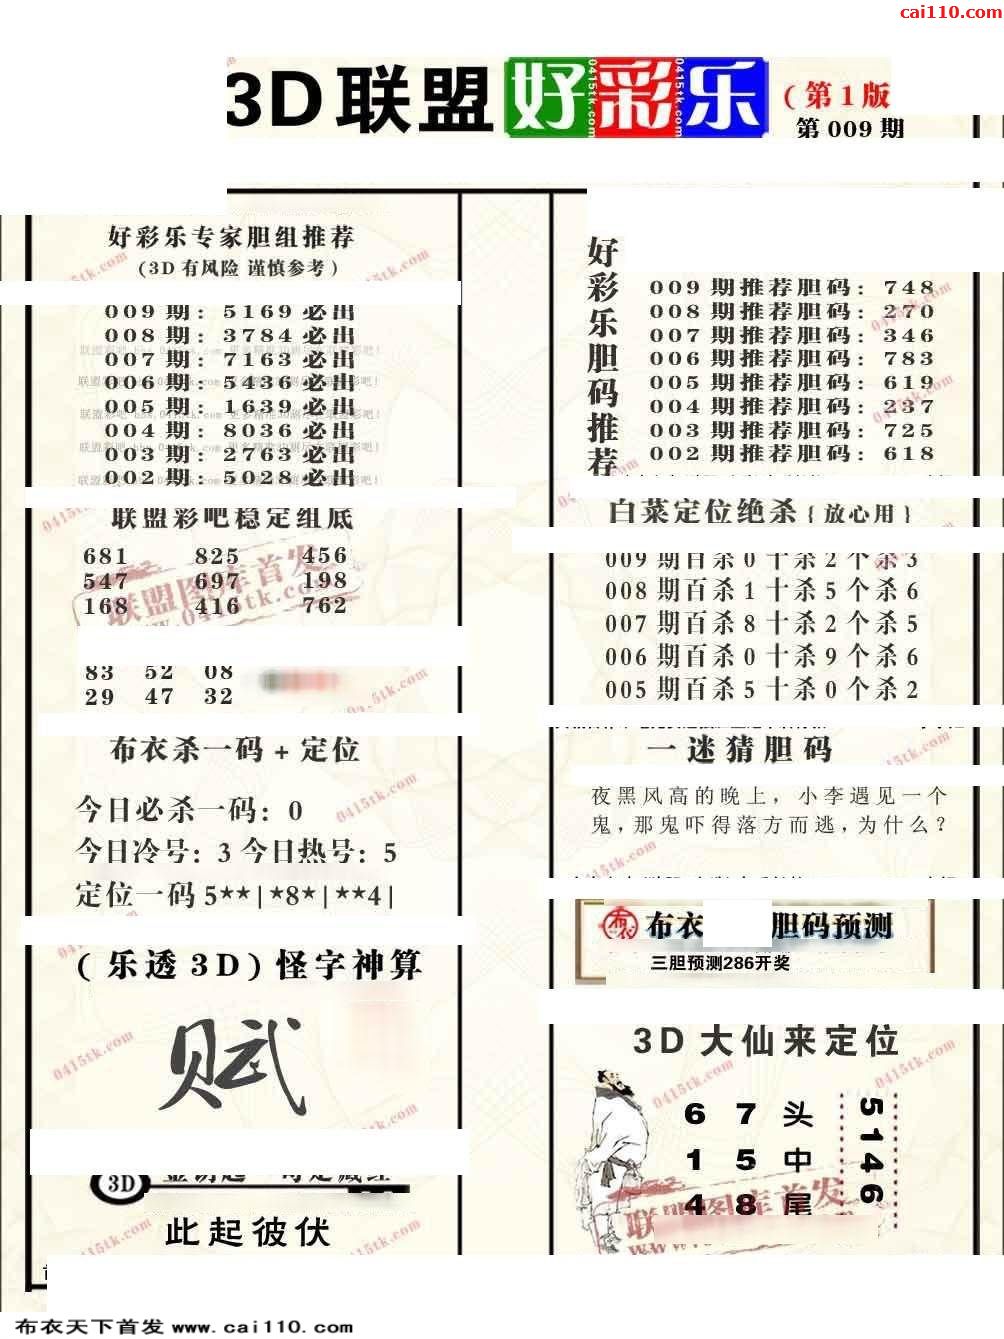 cai110.com
3D联盟好彩乐(第1版
第009期
好彩乐专家胆组推荐
(3D有风险 谨慎参考)
009期: 5169必出
008期: 3784必出
007期: 7163必出
006期: 5436必出
005期: 1639必出
004期: 8036必出
003期: 2763必出
002期: 5028必出
联盟彩吧稳定组底
681 825 456
547 697 198
168 416 762
83 52 08
29 47 32
布衣杀一码+定位
今日必杀一码: 0
今日冷号: 3 今日热号: 5
定位一码 5**|*8*|**4|
(乐透3D)怪字神算
赋
3D
此起彼伏
好彩乐胆码推荐
009期推荐胆码: 748
008期推荐胆码: 270
007期推荐胆码: 346
006期推荐胆码: 783
005期推荐胆码: 619
004期推荐胆码: 237
003期推荐胆码: 725
002期推荐胆码: 618
白菜定位绝杀{放心用}
009期百杀0十杀2个杀3
008期百杀1十杀5个杀6
007期百杀8十杀2个杀5
006期百杀0十杀9个杀6
005期百杀5十杀0个杀2
一迷猜胆码
夜黑风高的晚上，小李遇见一个
鬼，那鬼吓得落方而逃，为什么？
布衣 布衣 胆码预测
三胆预测286开奖
3D大仙来定位
6 7 头
1 5 中
4 8 尾
5146
联盟图库首发
www.0415tk.com
0415tk.com
布衣天下首发 www.cai110.com